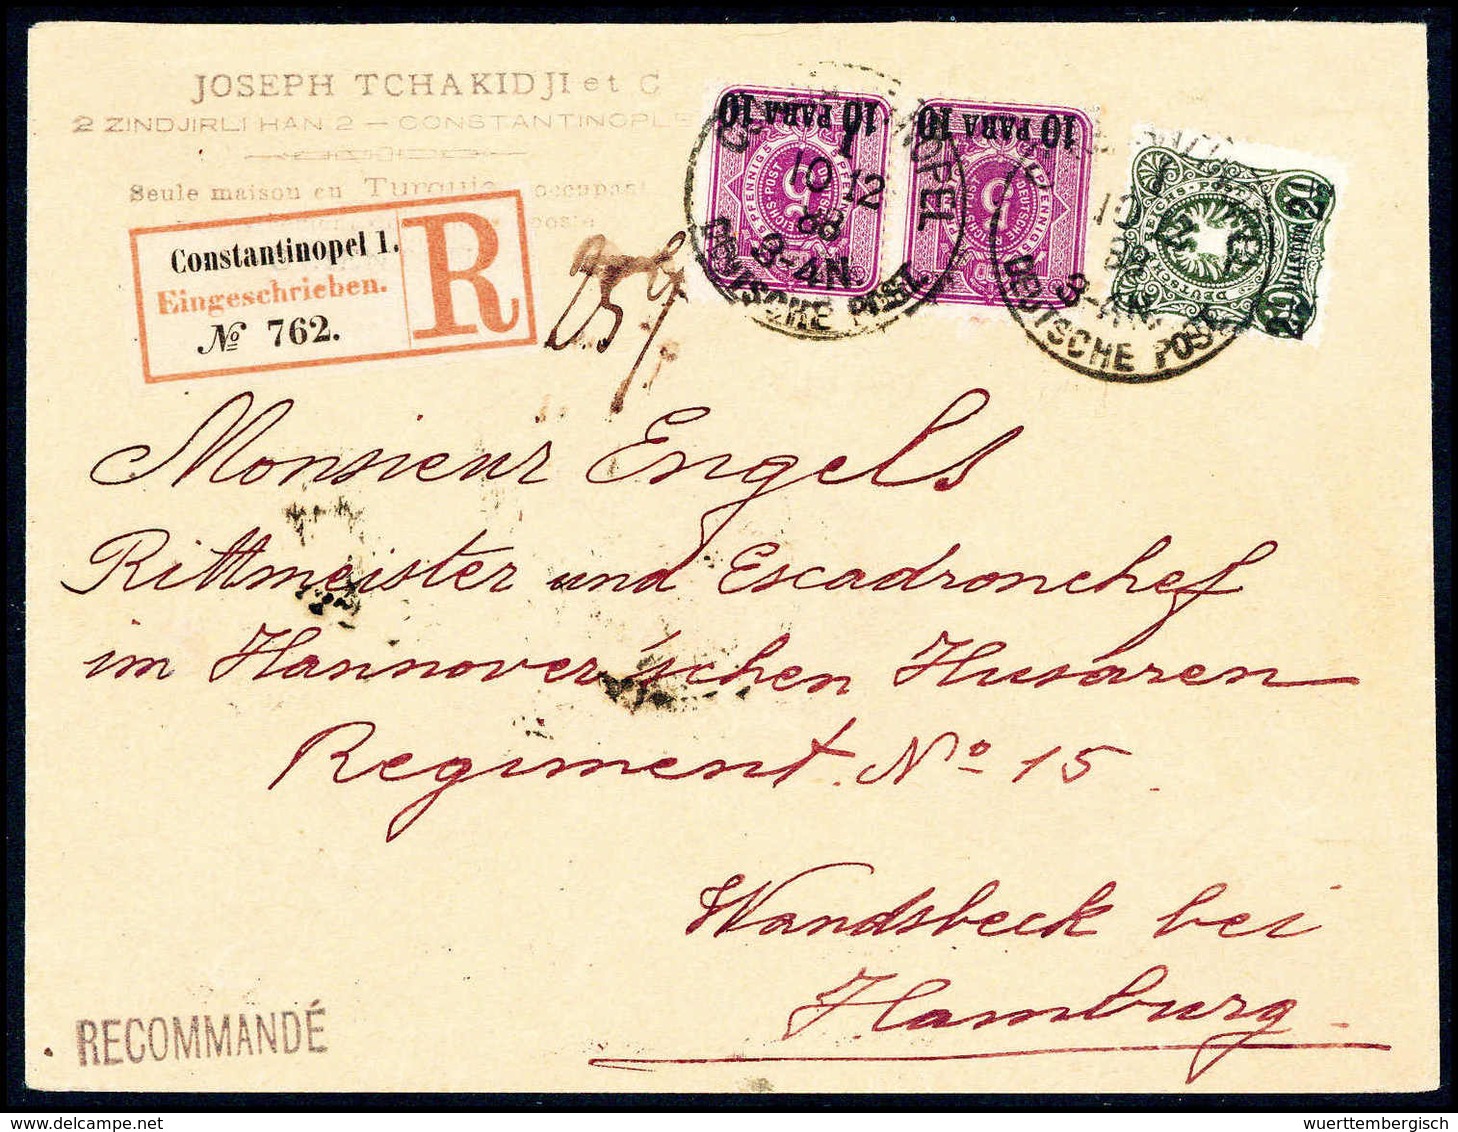 JOSEPH TCHAKIDJI et C
2 ZINDJIRLI HAN 2 — CONSTANTINOPLE
Seule maison en Turquie occupant
Constantinopel 1.
Eingeschrieben.
№ 762.
R
10 PARA 10
5 PFENNIG 5
10 PARA 10
5 PFENNIG 5
10 12
88
3-4N.
DEUTSCHE POST
10
88
3-4N.
DEUTSCHE POST
Monsieur Engels
Rittmeister und Escadronchef
im Hannover'schen Husaren
Regiment. Nº 15.
Wandsbeck bei
Hamburg.
RECOMMANDÉ
wuerttembergisch